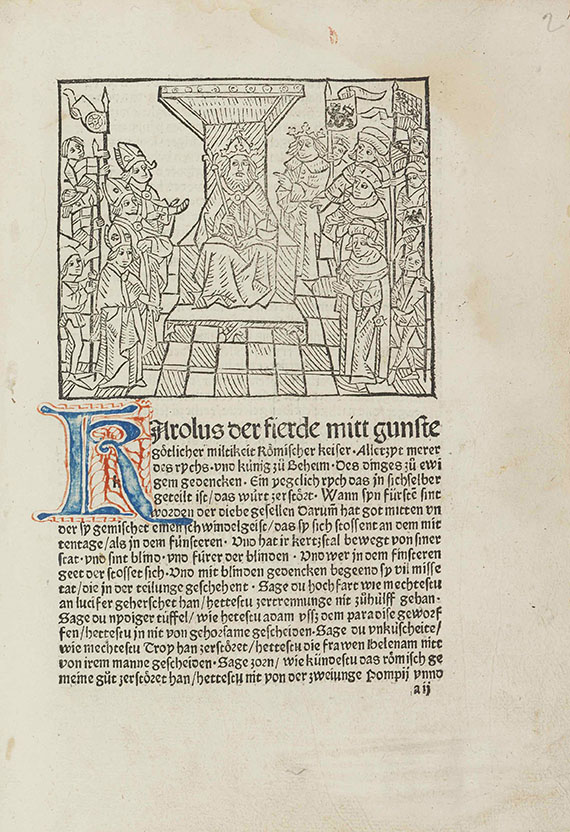 2
KArolus der fierde mitt gunste
götlicher miltikeit Römischer keiser · Allerzyt merer
des rychs · vnd künig zů Beheim · Des dinges zů ewi
gem gedencken · Ein yegclich rych das in sichselber
geteilt ist / das würt zerstört · Wann syn fürstē sint
worden der diebe gesellen Darum̄ hat got mitten vn
der sy gemischet einen schwindelgeist / das sy sich stossent an dem mit
tentage / als in dem fünsteren · Vnd hat ir kertzstal bewegt von siner
stat · vnd sint blind · vnd fürer der blinden · Vnd wer in dem finsteren
geet der stosset sich · Vnd mit blinden gedencken begeend sy vil misse
tat / die in der teilunge geschehent · Sage du hochfart wie mechtestu
an lucifer geherschet han / hettestu zertrennunge nit zůhülff gehan ·
Sage du nydiger tüffel / wie hetestu adam vsz dem paradise geworf
fen / hettestu jn nit von gehorsame gescheiden · Sage du vnküscheite /
wie mechtestu Troy han zerstöret / hettestu die frawen Helenam nitt
von irem manne gescheiden · Sage zorn / wie kündestu das römisch ge
meine gůt zerstöret han / hettestu nit von der zweiunge Pompij vnnd
a ij